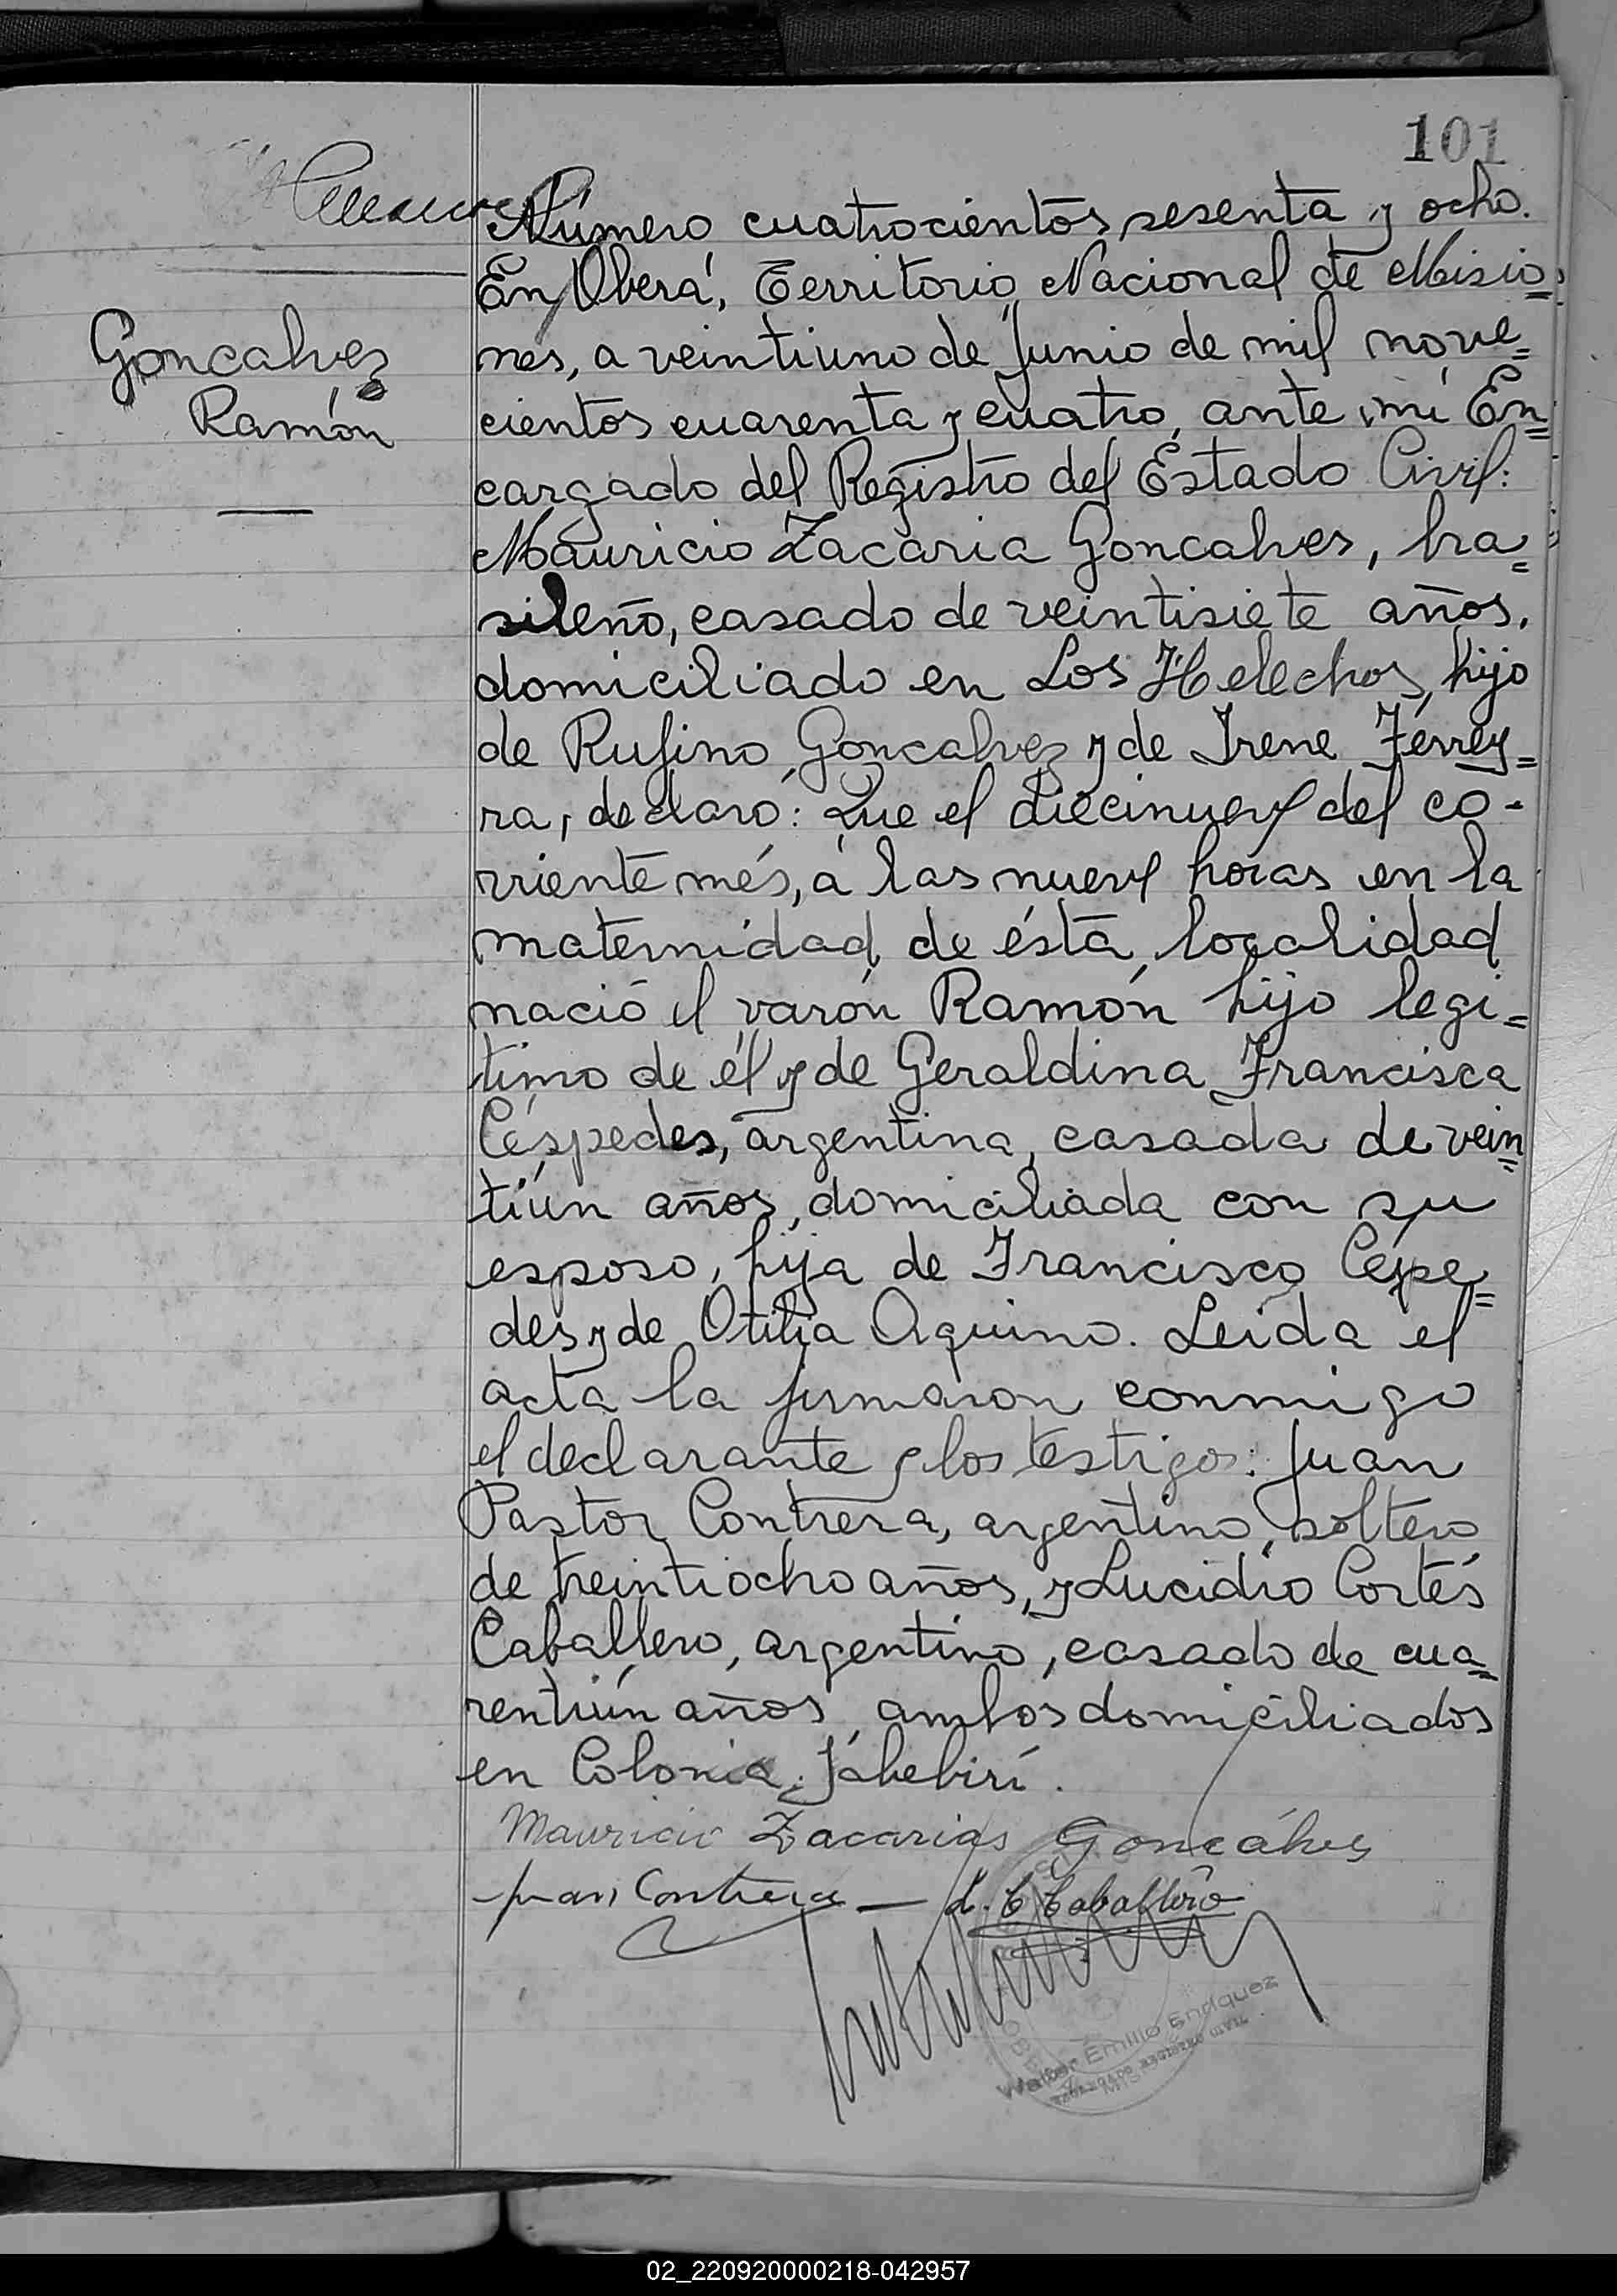 101
Número cuatrocientos sesenta y ocho.
En Oberá, Territorio Nacional de Misio=
Goncalvez
Ramón
nes, a veintiuno de Junio de mil nove=
cientos cuarenta y cuatro, ante mí En=
cargado del Registro del Estado Civil:
Mauricio Zacaria Goncalves, bra=
sileño, casado de veintisiete años,
domiciliado en Los Helechos, hijo
de Rufino Goncalvez y de Irene Ferrey=
ra, declaró: Que el diecinueve del co-
rriente més, a las nueve horas en la
maternidad de ésta localidad
nació el varón Ramón hijo legi=
timo de él y de Geraldina Francisca
Céspedes, argentina, casada de vein=
tiún años, domiciliada con su
esposo, hija de Francisco Céspe=
des y de Otilia Aquino. Leida el
acta la firmaron conmigo
el declarante y los testigos: Juan
Pastor Contrera, argentino, soltero
de treintiocho años, y Lucidio Cortés
Caballero, argentino, casado de cua=
rentiún años, ambos domiciliados
en Colonia Jabebirí.
Mauricio Zacarias Goncálves
Juan Contrera — L. C Caballero
Walter Emilio Enriquez
02_220920000218-042957